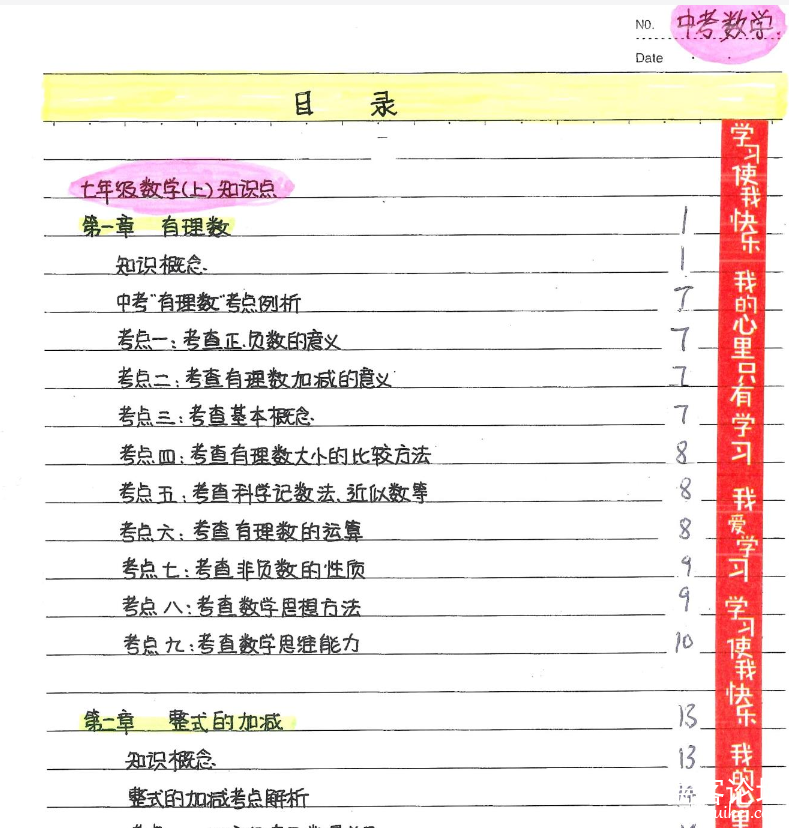 NO. 中考数学
Date
目 录
七年级数学(上)知识点
第一章 有理数 1
知识概念 1
中考“有理数”考点例析 7
考点一:考查正.负数的意义 7
考点二:考查有理数加减的意义 7
考点三:考查基本概念 7
考点四:考查有理数大小的比较方法 8
考点五:考查科学记数法、近似数等 8
考点六:考查有理数的运算 8
考点七:考查非负数的性质 9
考点八:考查数学思想方法 9
考点九:考查数学思维能力 10
第二章 整式的加减 13
知识概念 13
整式的加减考点解析
学习使我快乐 我的心里只有学习 我爱学习 学习使我快乐 我的心里